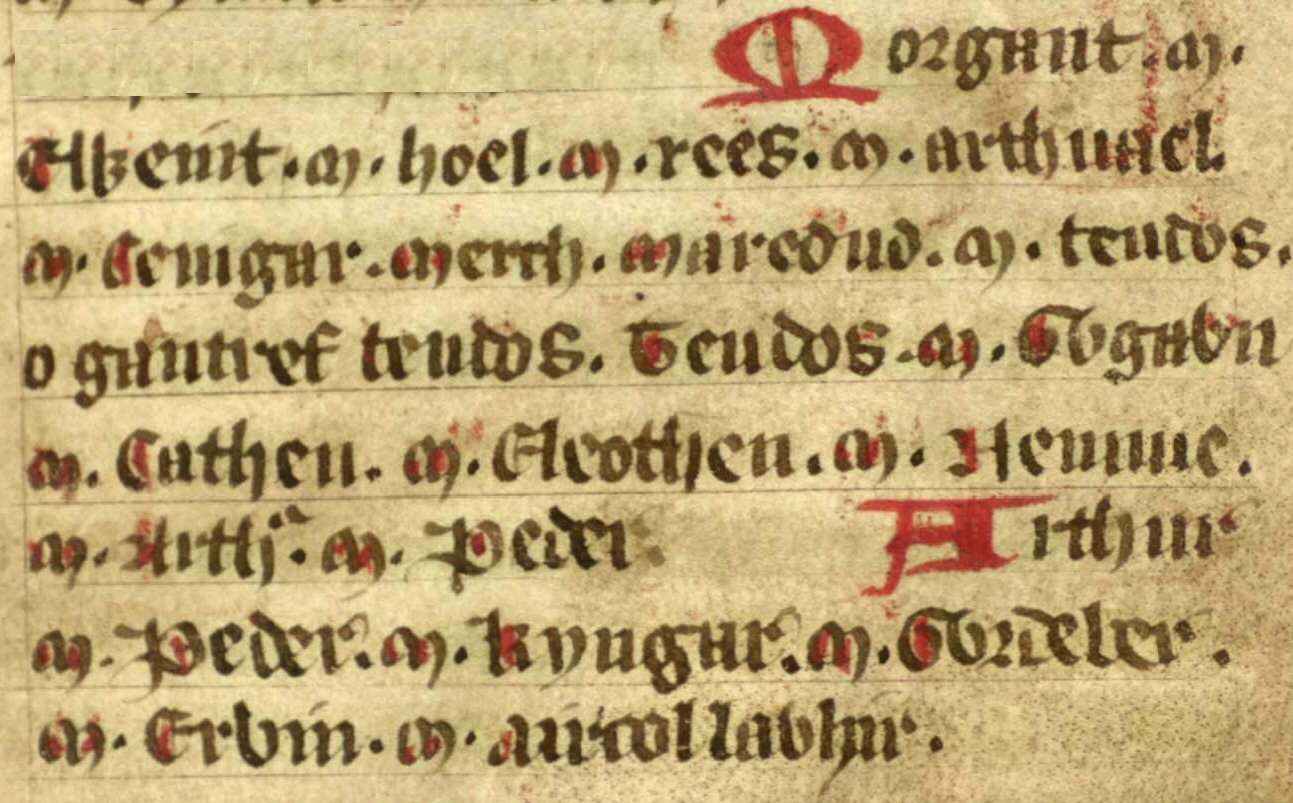 Morgant. m.
Elizenit. m. hoel. m. rees. m. arthuael.
m. Ceingar. merch. maredud. m. teudos.
o gantref teudos. Teudos. m. Gvgavn
m. Cathen. m. Eleothen. m. Nennue.
m. Arth͛. m. Peder Arthur
m. Peder. m. kyngar. m. Gordeber.
m. Ervin. m. aircol lavhir.